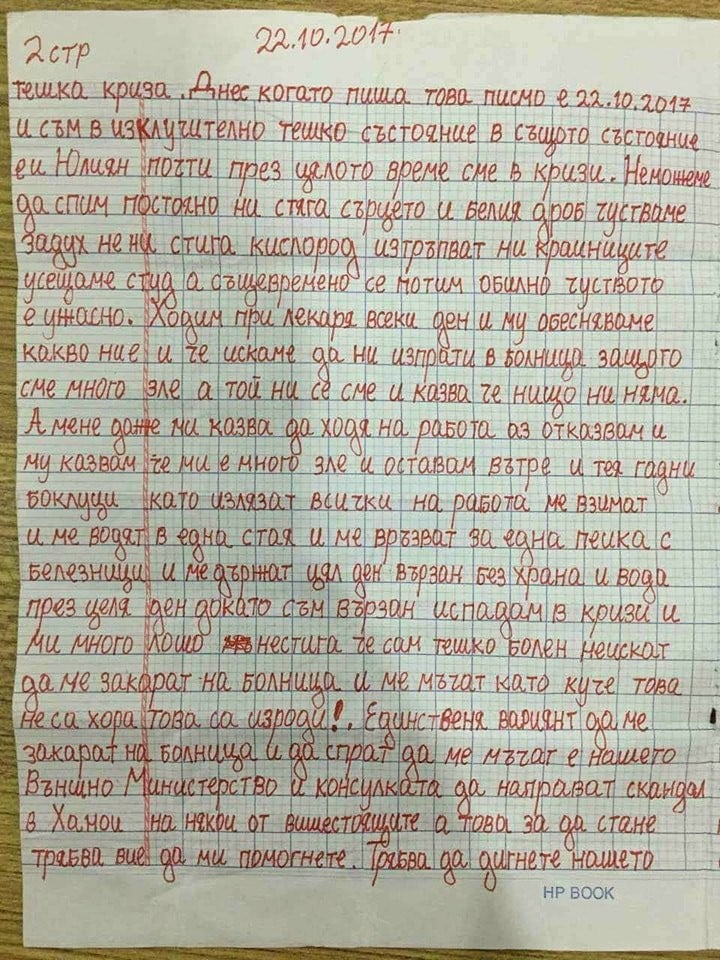 2 стр
22.10.2017.
тешка криза. Днес когато пиша това писмо е 22.10.2017
и съм в изклучително тешко състояние в същото състояние
е и Юлиян почти през цялото време сме в кризи. Неможеме
да спим постояно ни стяга сърцето и белия дроб чустваме
задух не ни стига кислород изтръпват ни краиниците
усещаме стид а същевремено се потим обилно чуството
е ужасно. Ходим при лекаря всеки ден и му обесняваме
какво ние и че искаме да ни изпрати в болница защого
сме много зле а той ни се сме и казва че нищо ни няма.
А мене даже ми казва да ходя на работа аз отказвам и
му казвам че ми е много зле и оставам вътре и тея гадни
боклуци като излязат всички на работа ме взимат
и ме водят в една стая и ме връзват за една пеика с
белезници и ме държат цял ден вързан без храна и вода
през целя ден докато съм вързан испадам в кризи и
ми много лошо нестига че сам тешко болен неискат
да ме закарат на болница и ме мъчат като куче това
не са хора това са изроди!. Единственя вариянт да ме
закарат на болница и да спрат да ме мъчат е нашето
Външно Министерство и консулката да направат скандал
в Ханои на някои от вишестоящите а това за да стане
трябва вие да ми помогнете. Трябва да дигнете нашето
HP BOOK